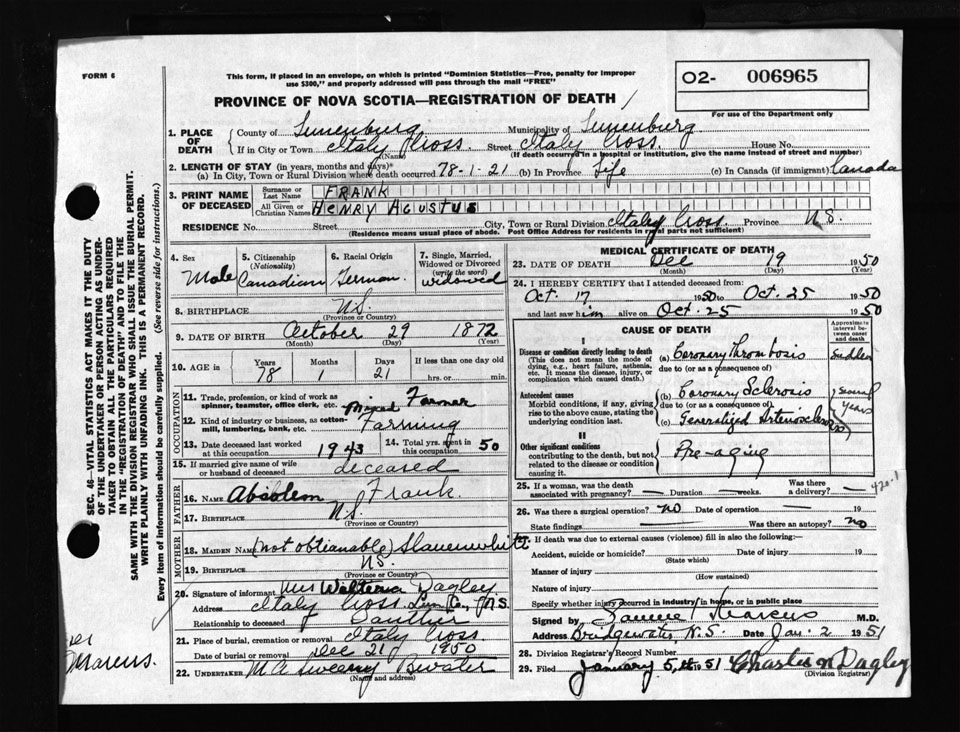 FORM 6
This form, if placed in an envelope, on which is printed "Dominion Statistics—Free, penalty for improper
use $300," and properly addressed will pass through the mail "FREE"
O2- 006965
For use of the Department only
PROVINCE OF NOVA SCOTIA—REGISTRATION OF DEATH
1. PLACE OF DEATH
County of Lunenburg Municipality of Lunenburg
If in City or Town Italy Cross Street Italy Cross. House No.
(Name) (If death occurred in a hospital or institution, give the name instead of street and number)
2. LENGTH OF STAY (in years, months and days)
(a) In City, Town or Rural Division where death occurred 78-1-21 (b) In Province Life (c) In Canada (if immigrant) Canada
3. PRINT NAME OF DECEASED
Surname or Last Name FRANK
All Given or Christian Names HENRY AGUSTUS
RESIDENCE No. Street City, Town or Rural Division Italy Cross Province N.S.
(Residence means usual place of abode. Post Office Address for residents in rural parts not sufficient)
4. Sex Male
5. Citizenship (Nationality) Canadian
6. Racial Origin German
7. Single, Married, Widowed or Divorced (write the word) widowed
8. BIRTHPLACE N.S.
(Province or Country)
9. DATE OF BIRTH October 29 1872
(Month) (Day) (Year)
10. AGE in Years 78 Months 1 Days 21 If less than one day old hrs. or min.
OCCUPATION
11. Trade, profession, or kind of work as spinner, teamster, office clerk, etc. Mixed Farmer
12. Kind of industry or business, as cotton-mill, lumbering, bank, etc. Farming
13. Date deceased last worked at this occupation 1943
14. Total yrs. spent in this occupation 50
15. If married give name of wife or husband of deceased deceased
FATHER
16. Name Absolem Frank.
17. BIRTHPLACE N.S.
(Province or Country)
MOTHER
18. MAIDEN NAME (not obtianable) Slauenwhite
19. BIRTHPLACE N.S.
(Province or Country)
20. Signature of informant Mrs Dagley
Address Italy Cross Lun Co., N.S.
Relationship to deceased
21. Place of burial, cremation or removal Italy Cross
Date of burial or removal Dec 21 1950
22. UNDERTAKER Sweeny Bwater
(Name and address)
MEDICAL CERTIFICATE OF DEATH
23. DATE OF DEATH Dec 19 1950
(Month) (Day) (Year)
24. I HEREBY CERTIFY that I attended deceased from
Oct. 17 1950 to Oct. 25 1950
and last saw him alive on Oct. 25 1950
CAUSE OF DEATH
Approximate interval between onset and death
I
Disease or condition directly leading to death
(This does not mean the mode of dying, e.g., heart failure, asthenia, etc. It means the disease, injury, or complication which caused death.)
(a) Coronary Thrombosis Sudden
due to (or as a consequence of)
Antecedent causes
Morbid conditions, if any, giving rise to the above cause, stating the underlying condition last.
(b) Coronary Sclerosis Several years
due to (or as a consequence of)
(c) Generalized Arteriosclerosis
II
Other significant conditions
contributing to the death, but not related to the disease or condition causing it.
Pre-aging
25. If a woman, was the death associated with pregnancy? — Duration — weeks. Was there a delivery? —
420.1
26. Was there a surgical operation? no Date of operation —
State findings — Was there an autopsy? no
27. If death was due to external causes (violence) fill in also the following:—
Accident, suicide or homicide? Date of injury 19
(State which)
Manner of injury
(How sustained)
Nature of injury
Specify whether injury occurred in industry, in home, or in public place
Signed by Marcus M.D.
Address Bridgewater, N.S. Date Jan. 2 1951
28. Division Registrar's Record Number
29. Filed January 5th 1951 Charles N Dagley
(Division Registrar)
SEC. 46—VITAL STATISTICS ACT MAKES IT THE DUTY
OF THE UNDERTAKER OR PERSON ACTING AS UNDER-
TAKER TO OBTAIN ALL THE PARTICULARS REQUIRED
IN THE "REGISTRATION OF DEATH" AND TO FILE THE
SAME WITH THE DIVISION REGISTRAR WHO SHALL ISSUE THE BURIAL PERMIT.
WRITE PLAINLY WITH UNFADING INK. THIS IS A PERMANENT RECORD.
Every item of information should be carefully supplied. (See reverse side for instructions.)
Marcus.